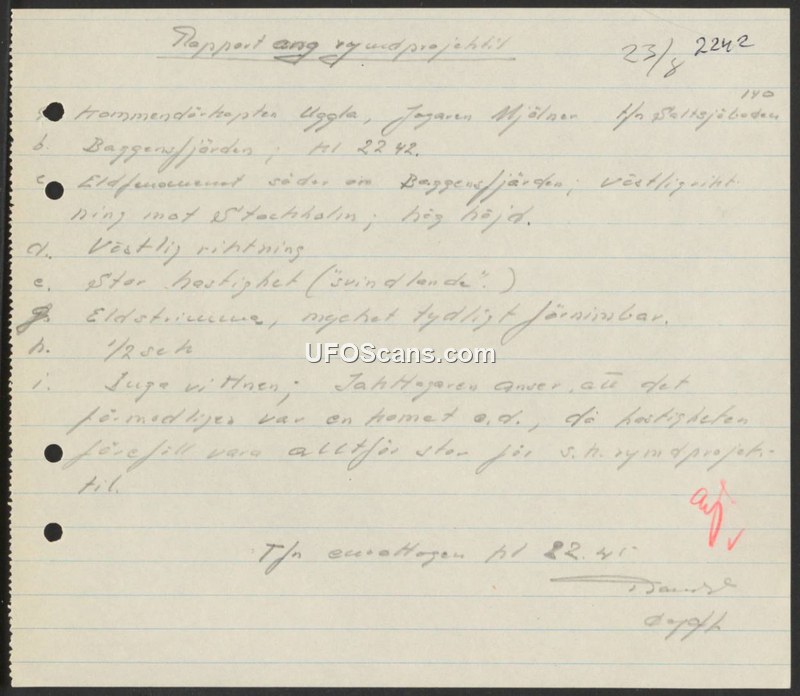 Rapport ang rymdprojektil
23/8 2242
140
a. Kommendörkapten Uggla, Jagaren Mjölner t/n Saltsjöbaden
b. Baggensfjärden; kl 22 42.
c. Eldfenomenet söder om Baggensfjärden; västlig rikt-
ning mot Stockholm; hög höjd.
d. Västlig riktning
e. Stor hastighet ("svindlande".)
g. Eldstrimma, mycket tydligt förnimbar.
h. 1/2 sek
UFOScans.com
i. Inga vittnen; Iakttagaren anser att det
förmodligen var en komet e.d., då hastigheten
föreföll vara alltför stor för s.k. rymdprojek-
til.
T/n emottagen kl 22.45